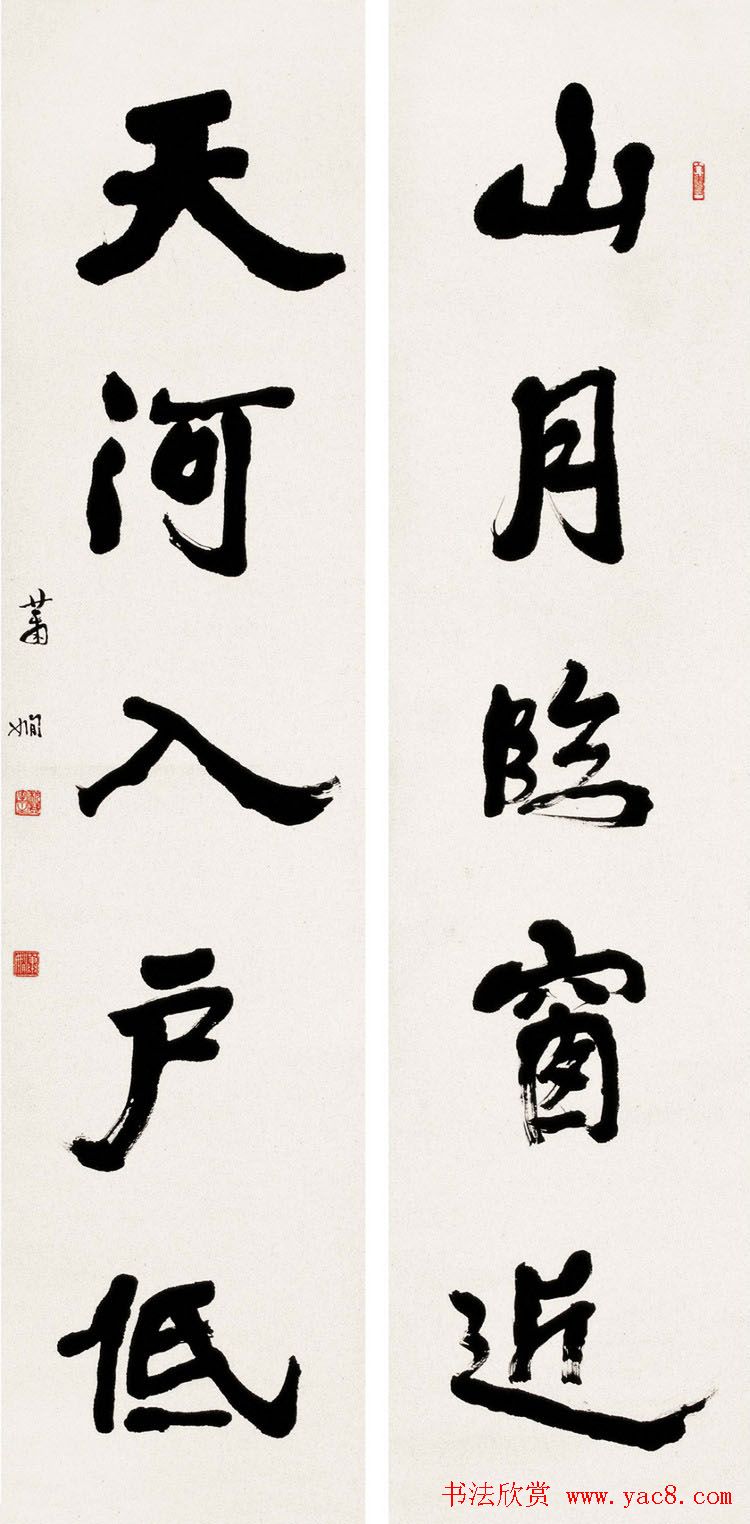 山月临窗近
天河入户低
萧娴
书法欣赏 www.yac8.com